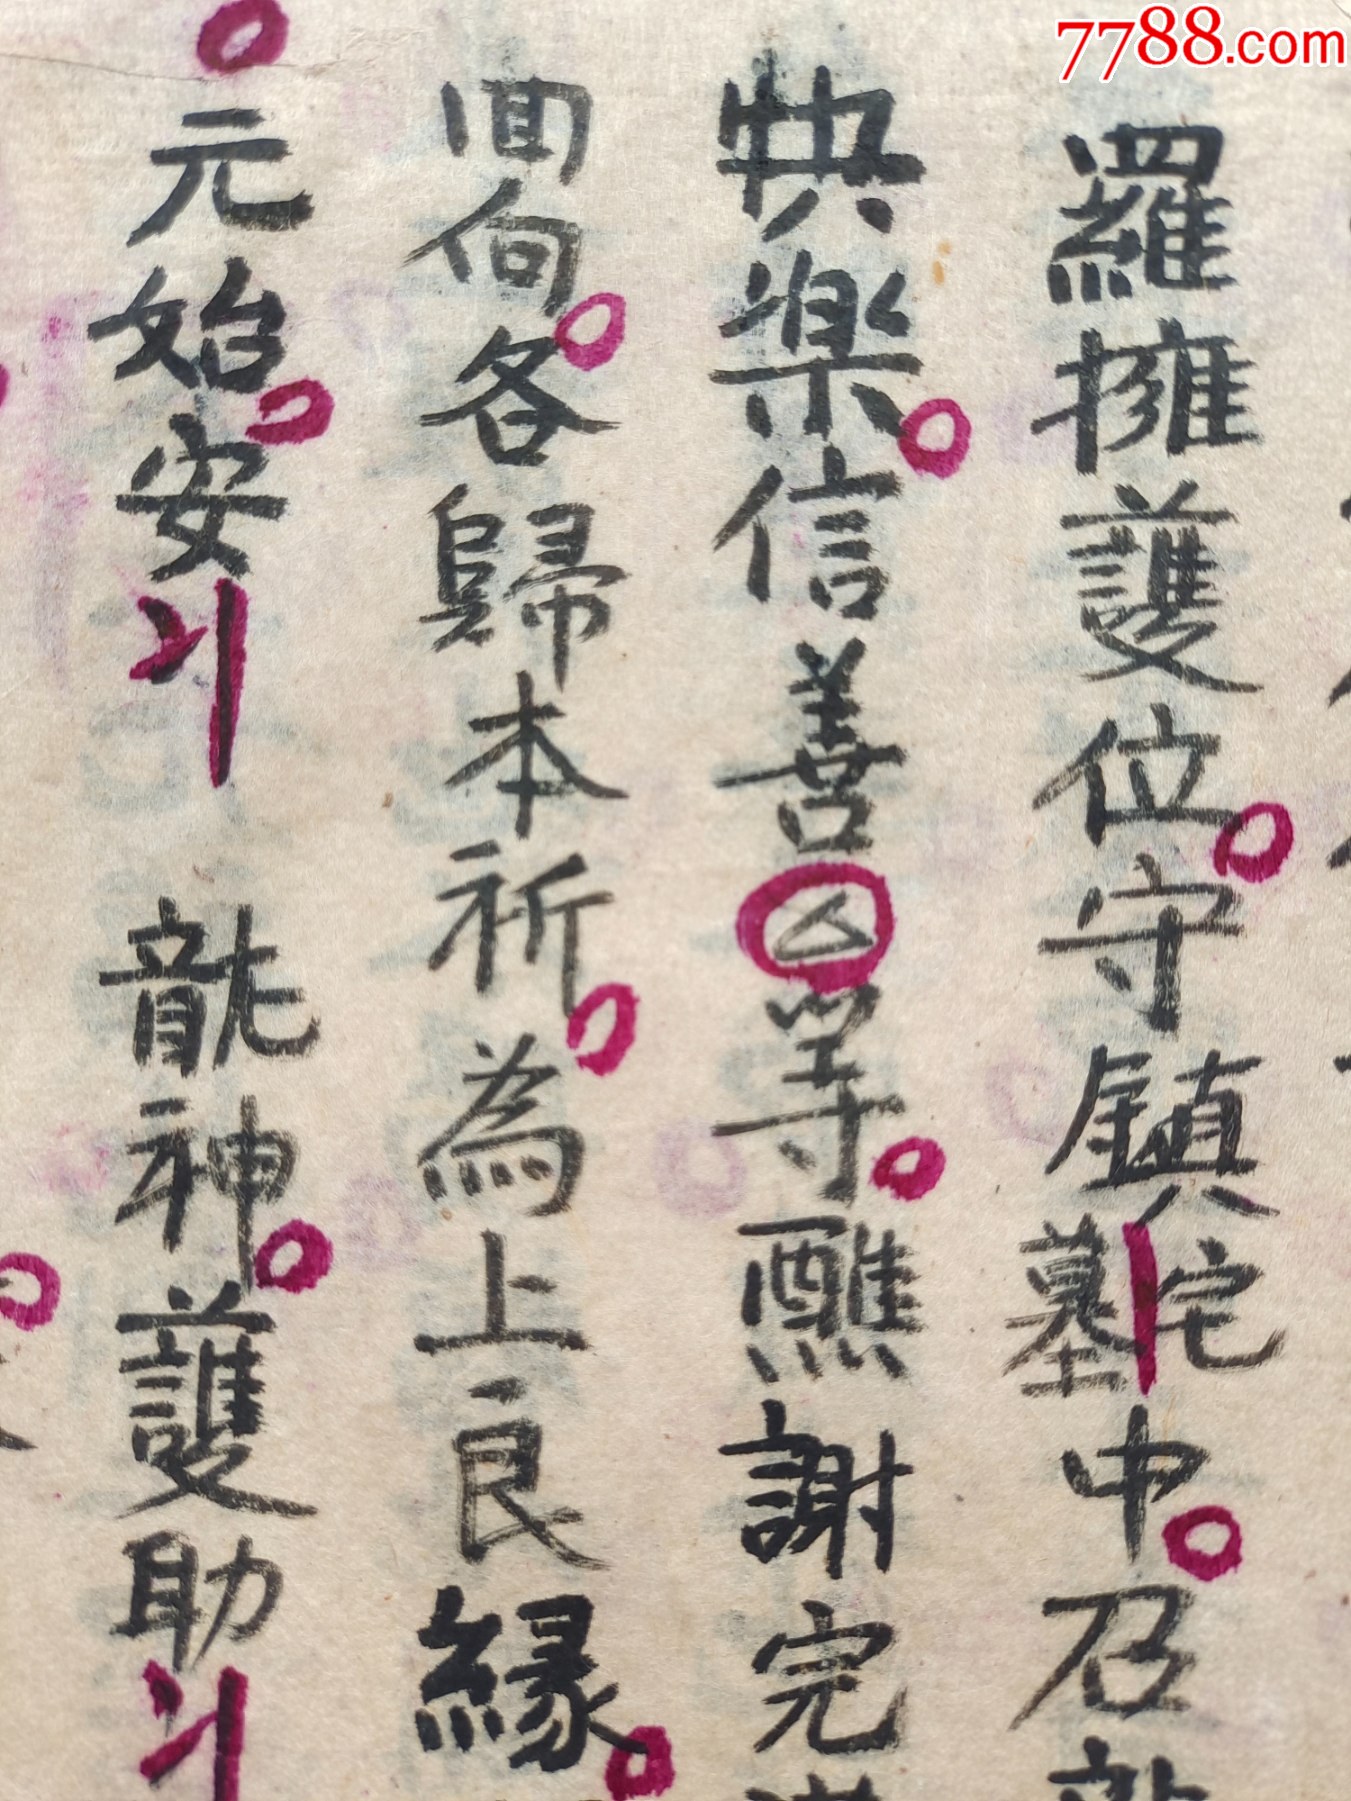 7788.com
羅擁護位守鎮墓宅中召龍
快樂信善厶等醮謝完滿
回向各歸本祈為上良緣
元始安 龍神護助